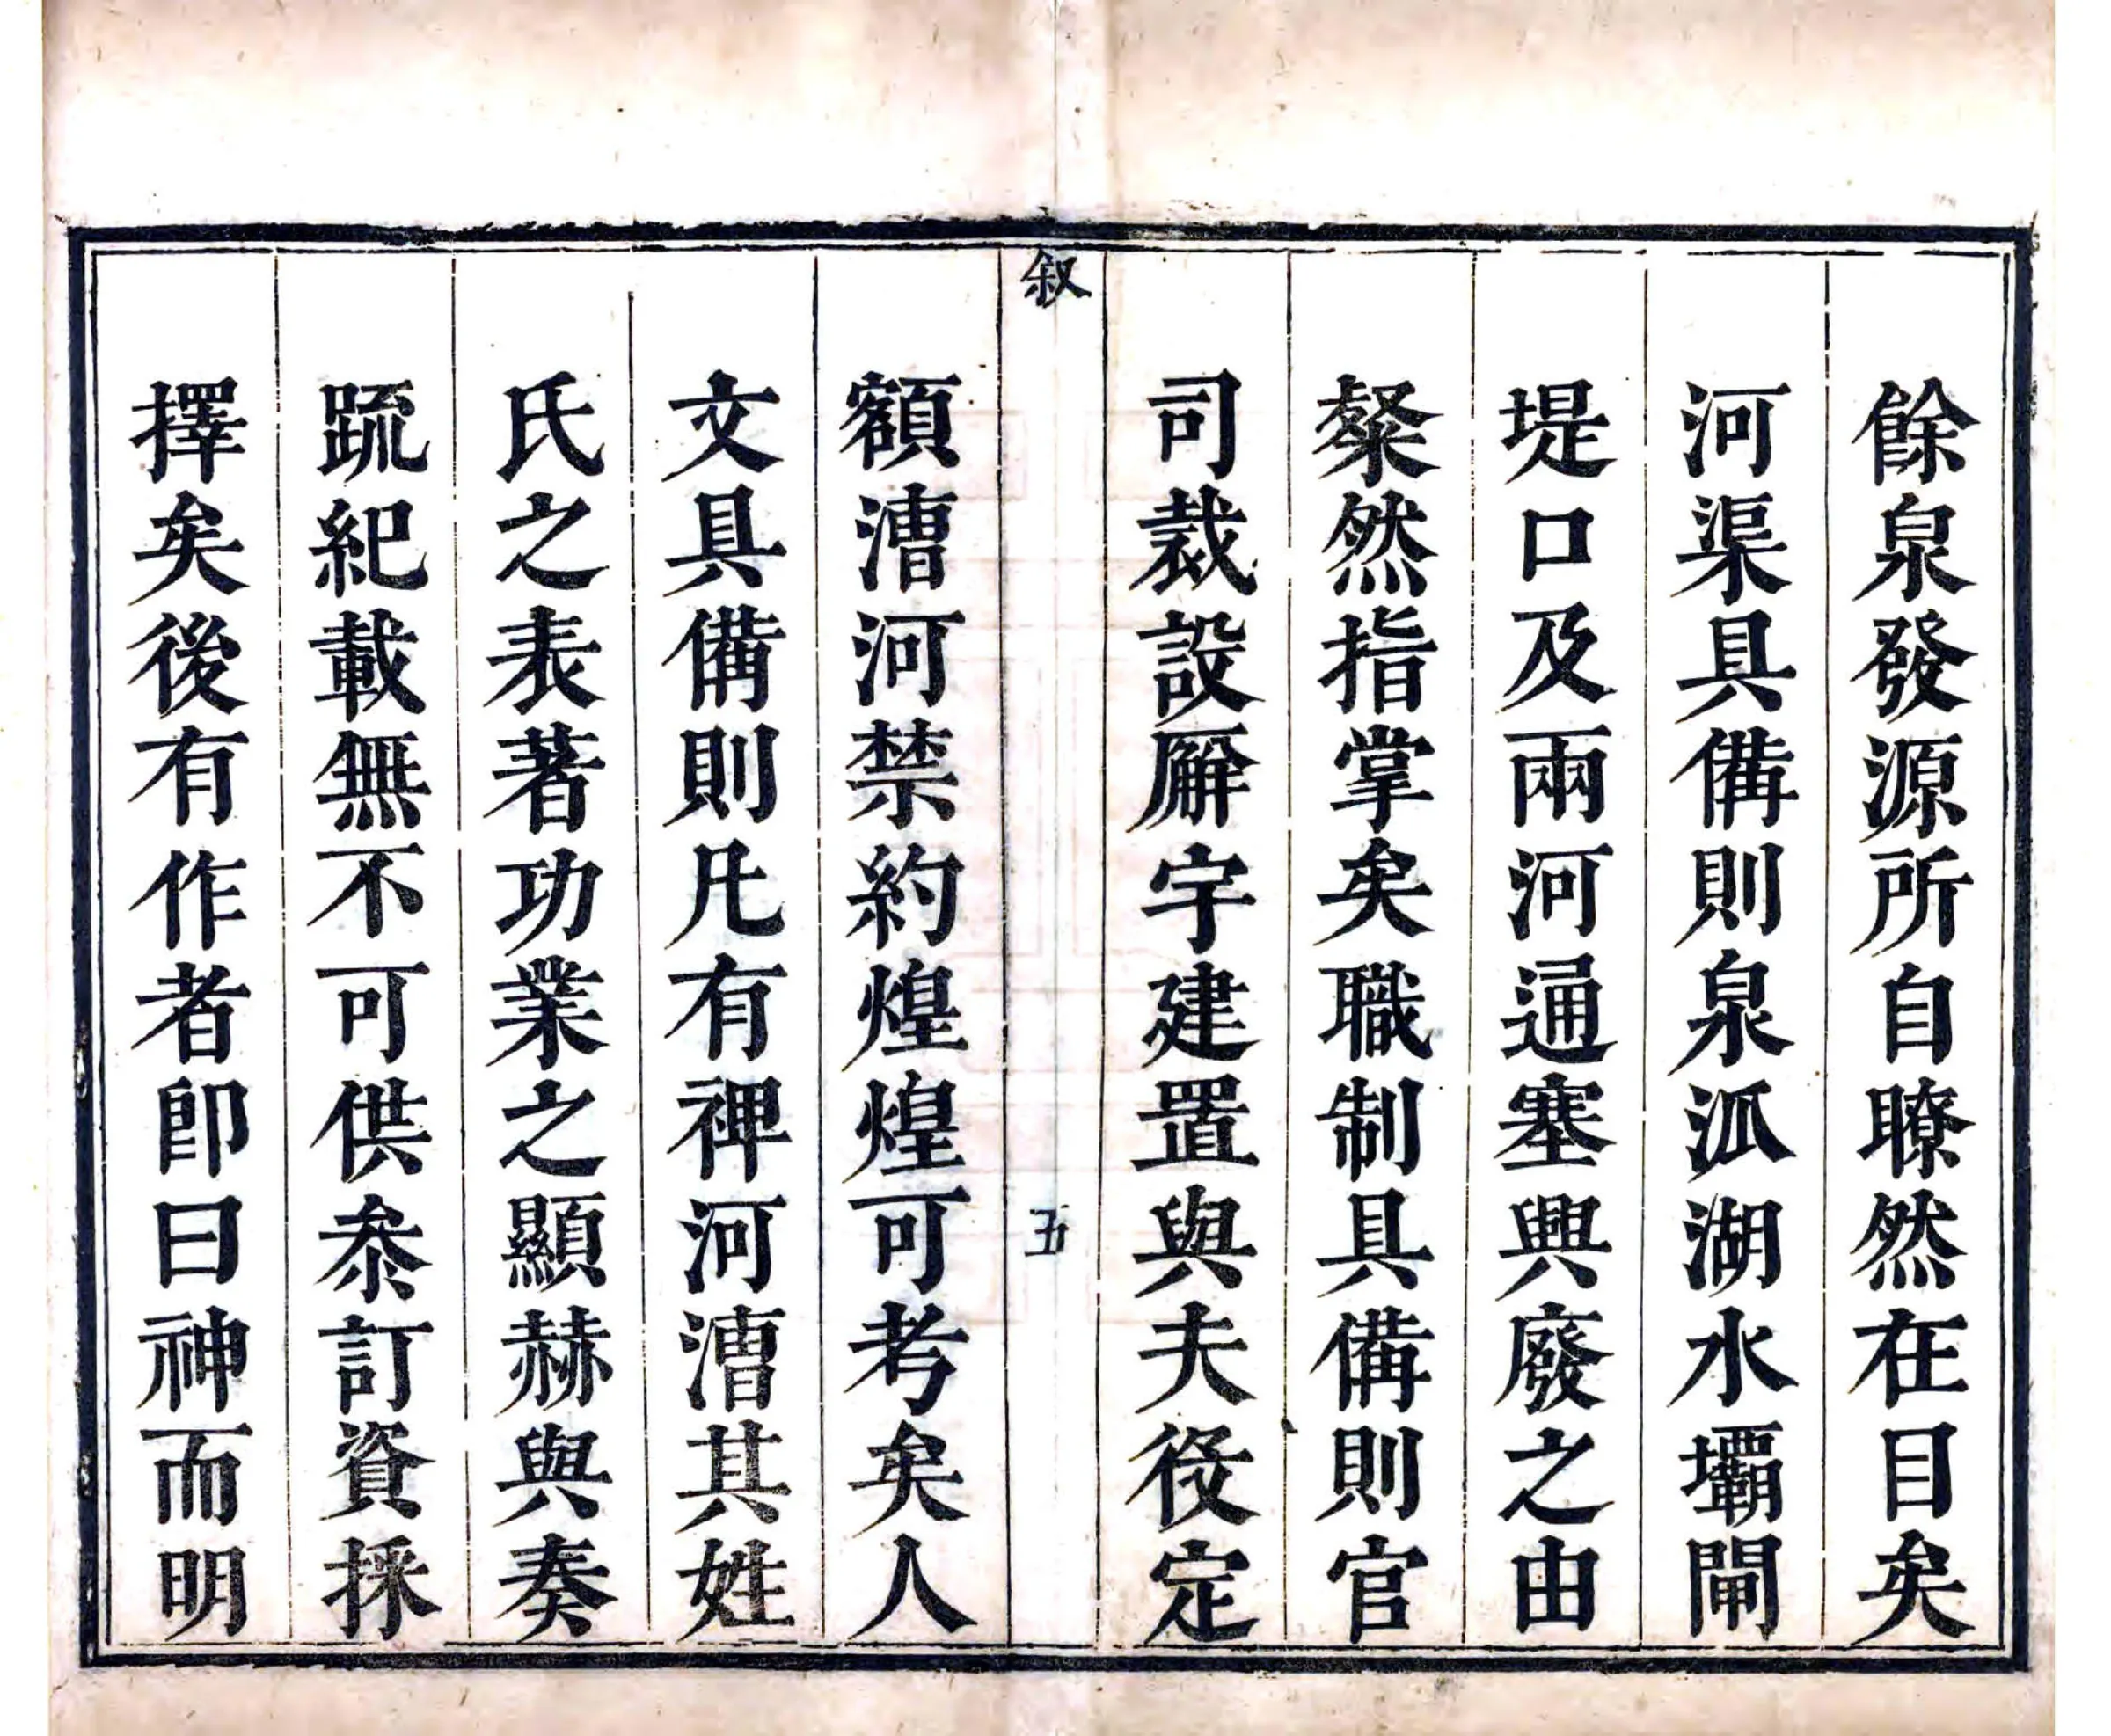 餘泉發源所自瞭然在目矣
河渠具備則泉泒湖水壩閘
堤口及兩河通塞興廢之由
粲然指掌矣職制具備則官
司裁設廨宇建置與夫役定
叙
五
額漕河禁約煌煌可考矣人
文具備則凡有裨河漕其姓
氏之表著功業之顯赫與奏
疏紀載無不可供叅訂資採
擇矣後有作者卽曰神而明